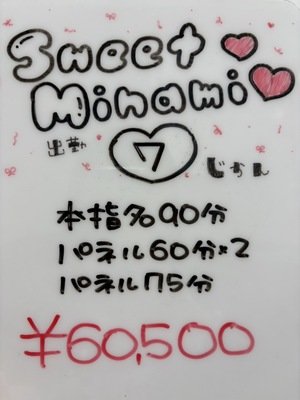 Sweet
Minami
出勤 7 じかん
本指名90分
パネル60分×2
パネル75分
¥60,500